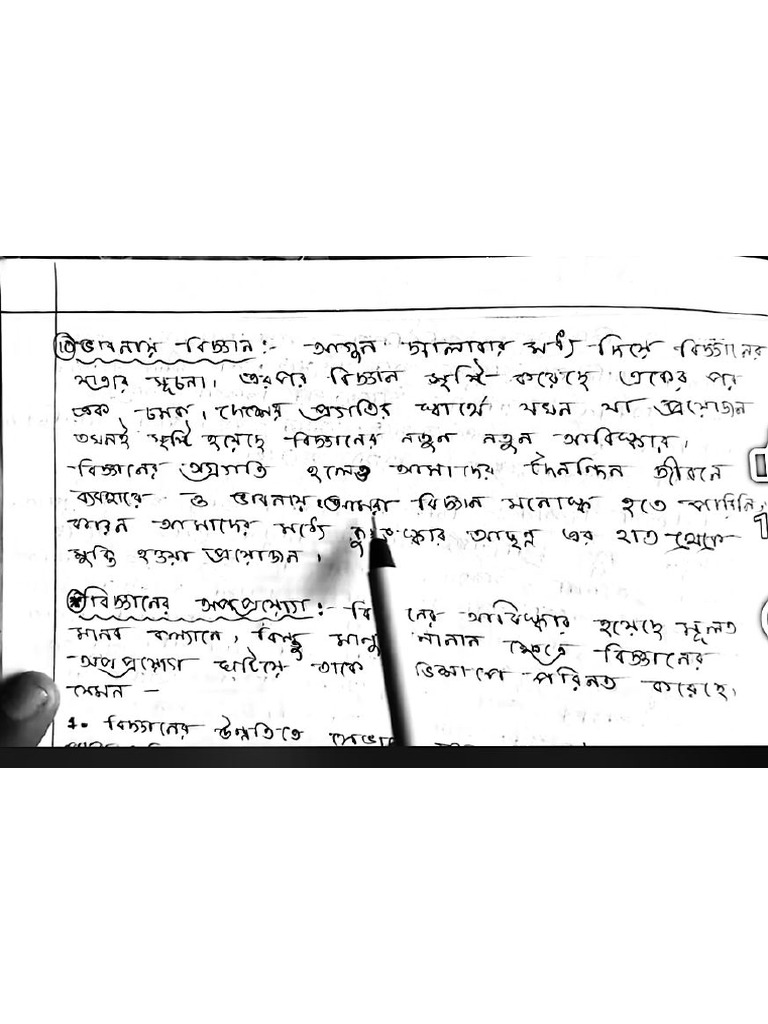 ভাবনায় বিজ্ঞান :- আগুন জ্বালাবার মধ্য দিয়ে বিজ্ঞানের
সূচনা। এরপর বিজ্ঞান সৃষ্টি করেছে একের পর
এক চমক। দেশের প্রগতির স্বার্থে যখন যা প্রয়োজন
তখনই সৃষ্টি হয়েছে বিজ্ঞানের নতুন নতুন আবিষ্কার।
বিজ্ঞানের অগ্রগতি হলেও আমাদের দৈনন্দিন জীবনে
ব্যবহারে ও ভাবনায় আমরা বিজ্ঞান মনোস্ক হতে পারিনি,
কারন আমাদের মধ্যে আছন্ন এর হাত থেকে
মুক্তি হওয়া প্রয়োজন।
বিজ্ঞানের অপপ্রয়োগ :- আবিষ্কার হয়েছে মূলত
মানব কল্যানে, কিন্তু নানান ক্ষেত্রে বিজ্ঞানের
অপপ্রয়োগ ঘটিয়ে তাকে পরিনত করেছে।
যেমন –
1. বিজ্ঞানের উন্নতিতে